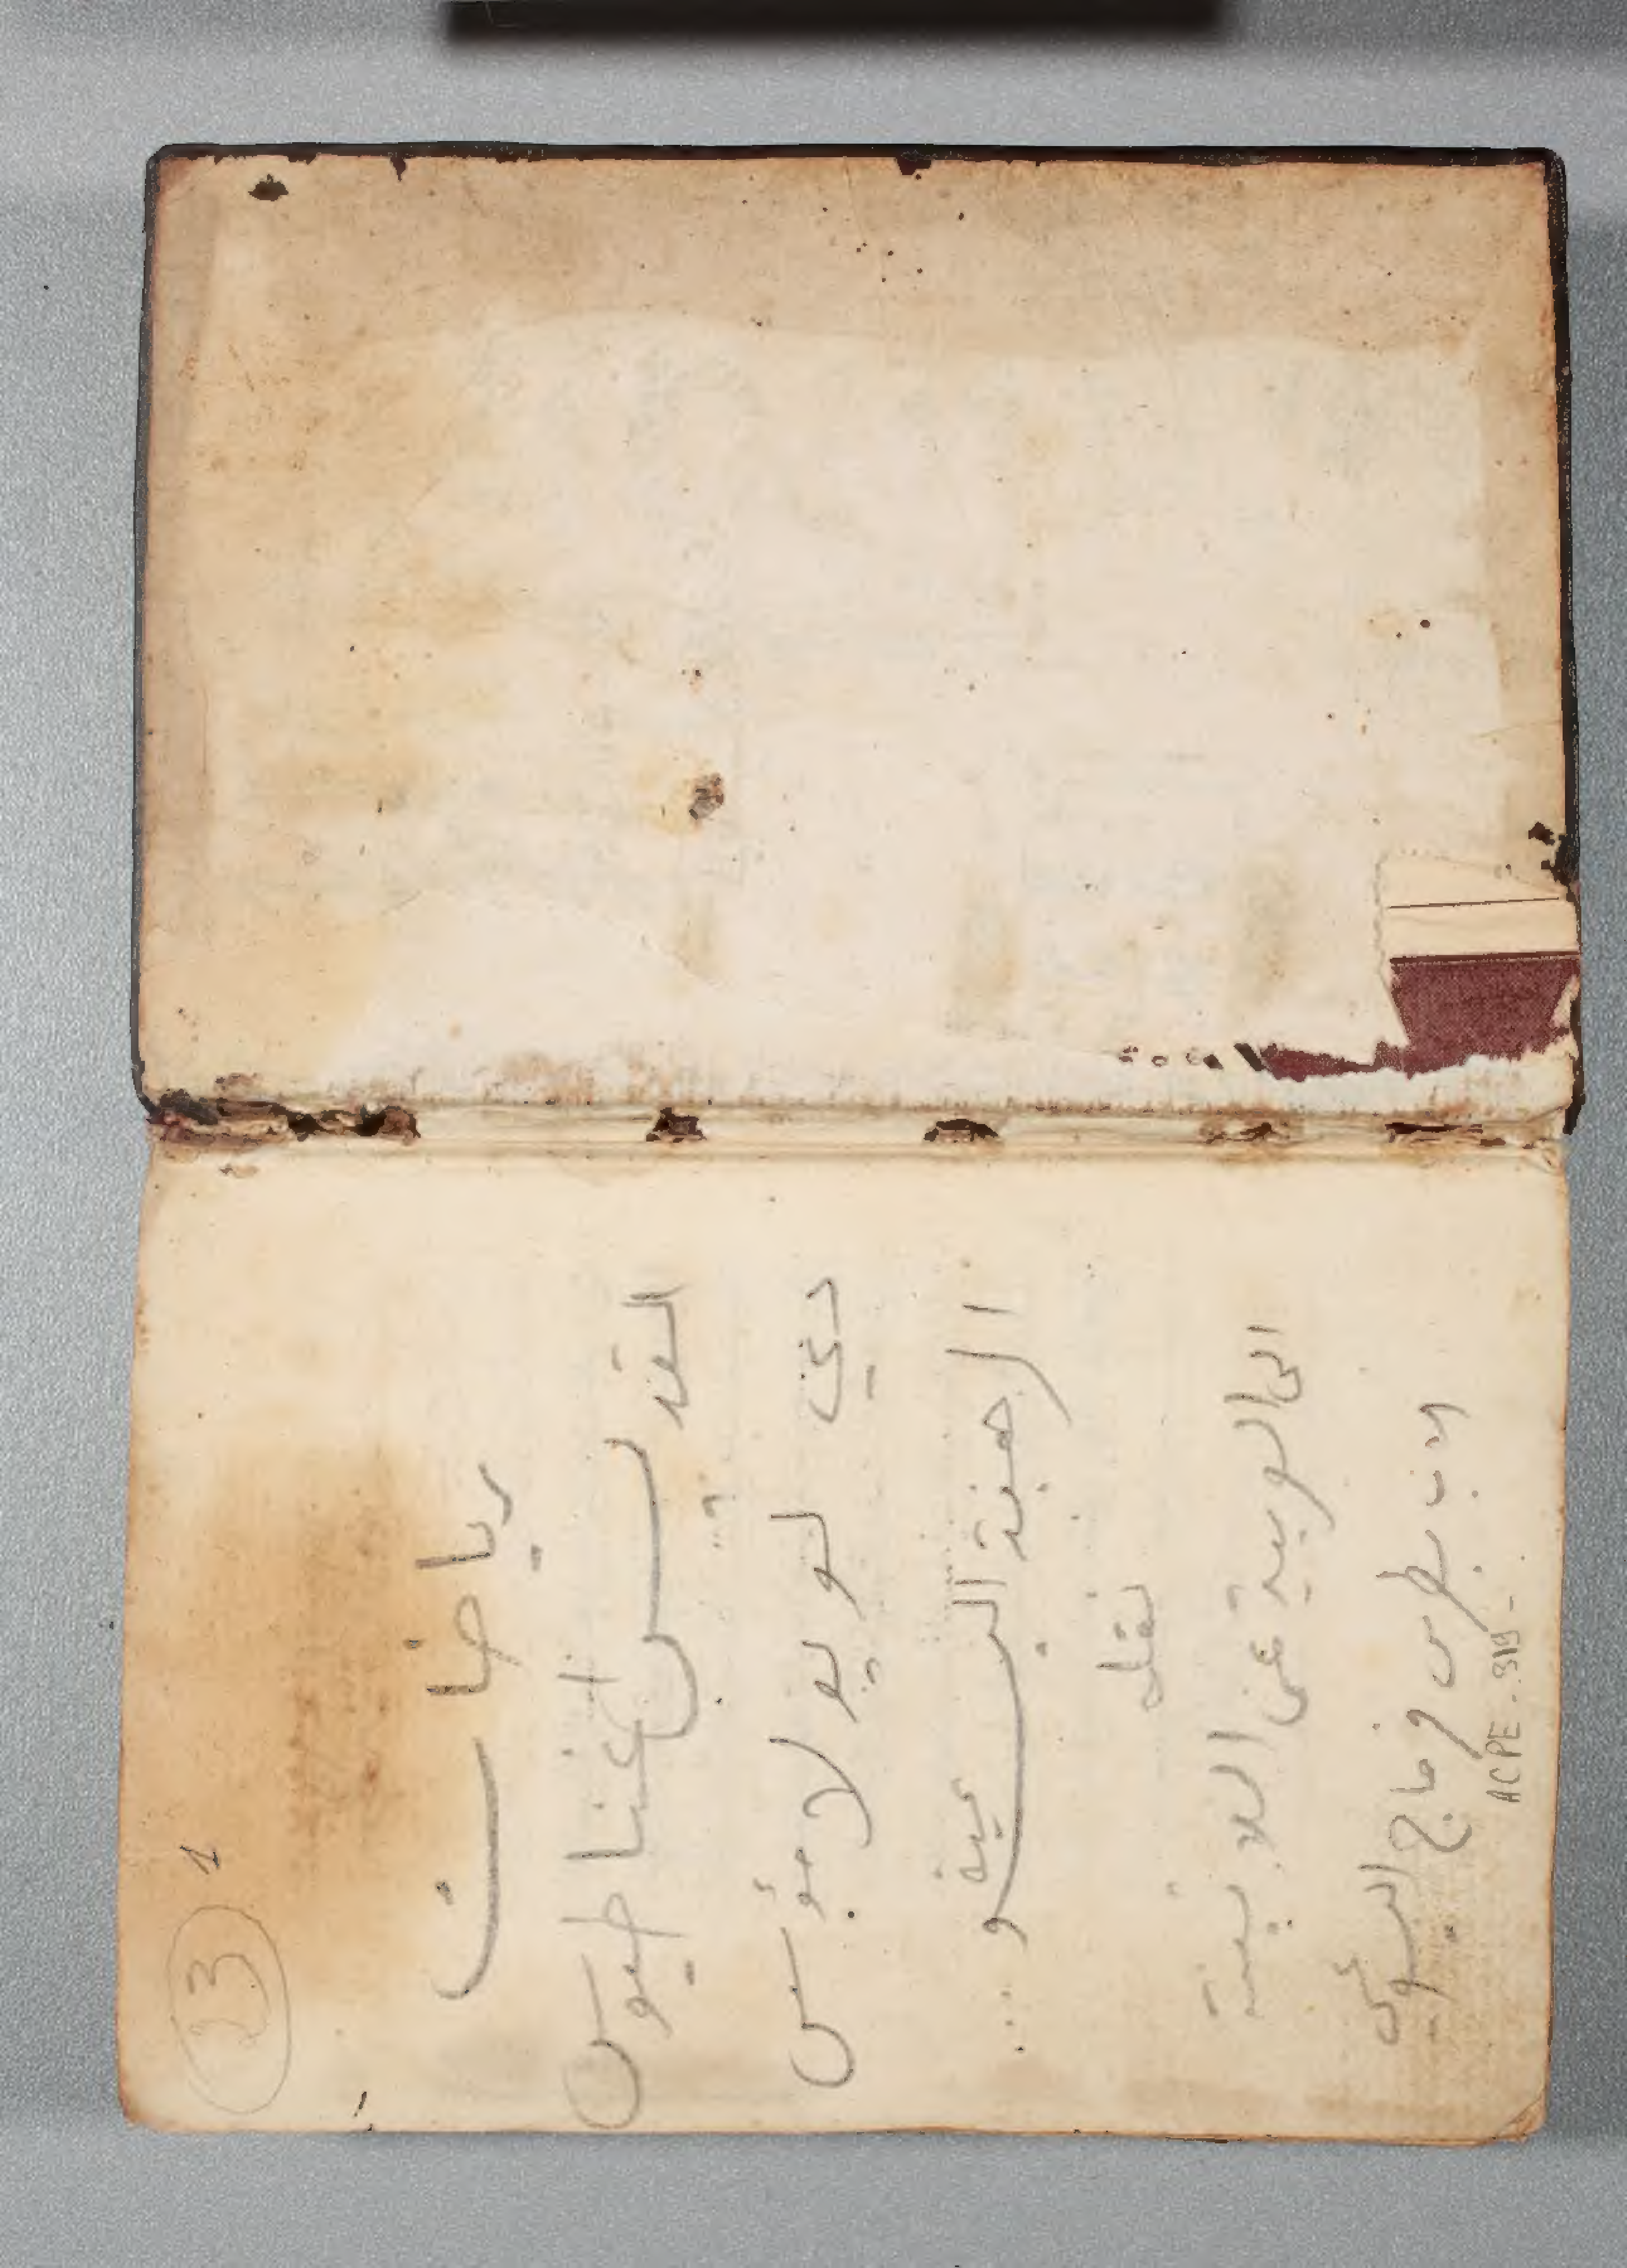 23 1
رياضات
القديس اغناطيوس
دي لويولا مؤسس
الرهبنة اليسوعية
نقله
الى العربية عن اللاتينية
الاب بطرس فرماج اليسوعي
ACPE - 319 -